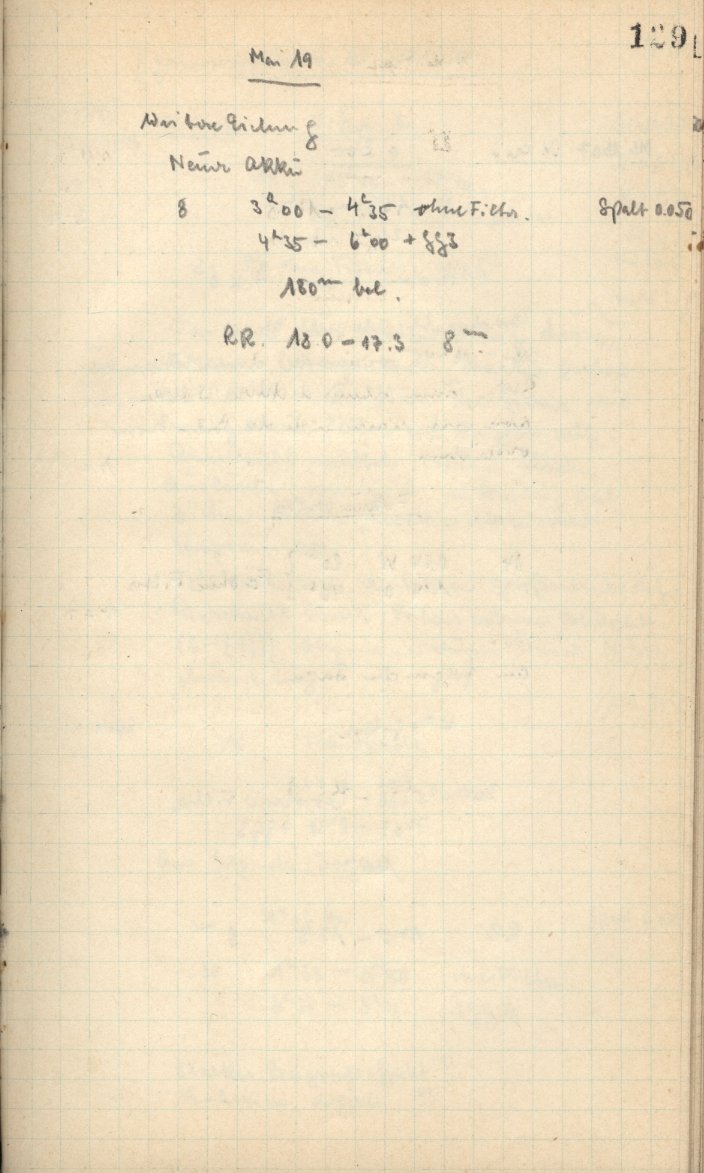 129
Mai 19
Weitere Eichung
Neuer Akku
8 3ʰ00 – 4ʰ35 ohne Filter. Spalt 0.050
4ʰ35 – 6ʰ00 + GG3
180ᵐ bel.
RR. 18.0 – 17.3 8ᵐ